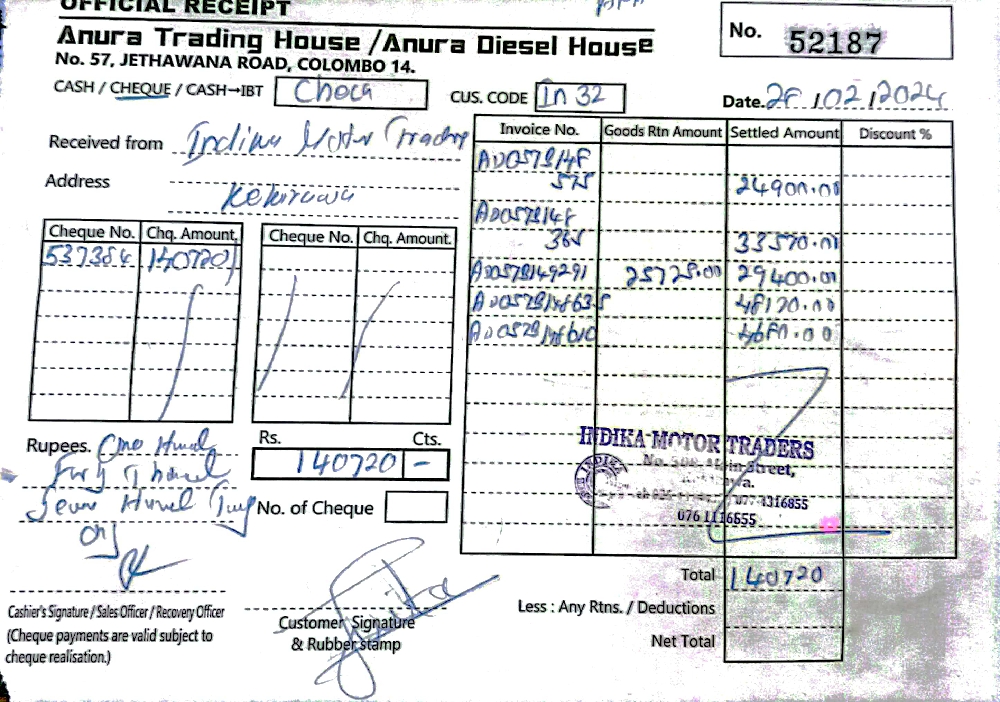 OFFICIAL RECEIPT
Anura Trading House /Anura Diesel House
No. 57, JETHAWANA ROAD, COLOMBO 14.
No. 52187
CASH / CHEQUE / CASH→IBT
CUS. CODE In 32
Date. 28/02/2024
Received from Indika Motor
Address Kekirawa
Cheque No. Chq. Amount. Cheque No. Chq. Amount.
537384 140720/
Invoice No. Goods Rtn Amount Settled Amount Discount %
AD057B148
575 24900.00
AD057B148
365 33570.00
AD057B149291 25725.00 29400.00
AD057B148635 48170.00
AD057B148610 4680.00
Rupees. One Hund
Rs. Cts.
140720 -
No. of Cheque
INDIKA MOTOR TRADERS
Main Street,
077 4316855
076 1116555
Total 140720
Less : Any Rtns. / Deductions
Net Total
Cashier's Signature / Sales Officer / Recovery Officer
(Cheque payments are valid subject to
cheque realisation.)
Customer Signature
& Rubber stamp